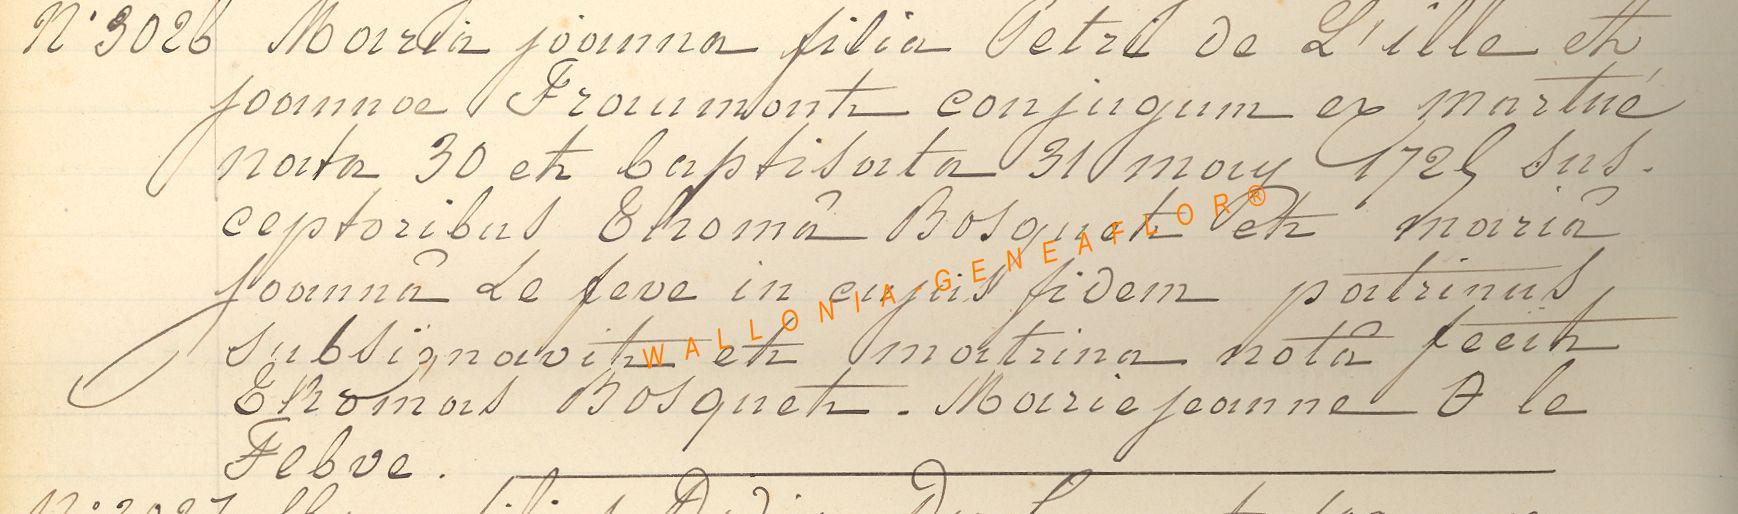 N° 3026 Maria joanna filia Petri de L'ille et
joannae Fraumont conjugum ex martué
nata 30 et baptisata 31 may 1725 sus-
ceptoribus Thomâ Bosquet et mariâ
joannâ Le feve in cujus fidem patrinus
subsignavit et matrina notâ fecit
Thomas Bosquet. Marie jeanne O le
Febve.
WALLONIA GENEAFLOR®